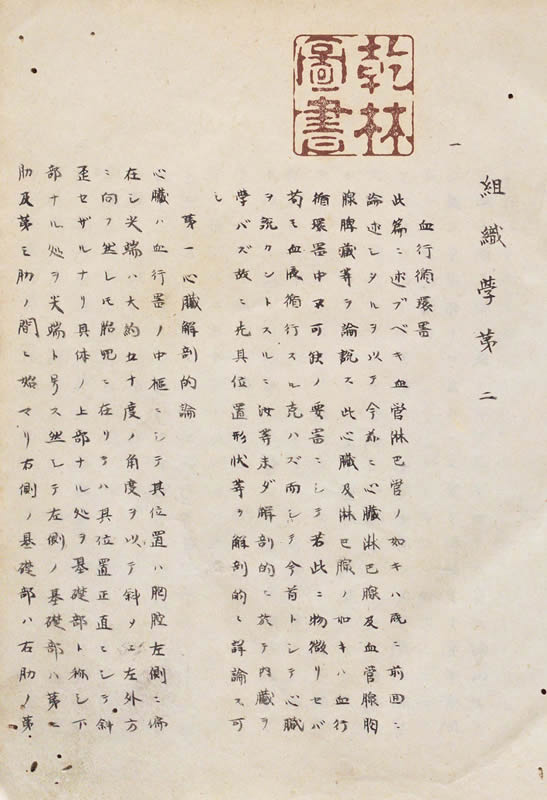 乾林圖書
一
組織學第二
血行循環器
此篇ニ述ブベキ血管淋巴管ノ如キハ既ニ前回ニ
論述シタルヲ以テ今茲ニ心臓淋巴腺及血管腺胸
腺脾蔵等ヲ論説ス此心臓及淋巴腺ノ如キハ血行
循環器中不可缺ノ要器ニシテ若此ニ物微リセバ
苟モ血液循行スル克ハズ而シテ今首トシテ心臓
ヲ説クントスルニ汝等未ダ解剖的ニ於テ内臓ヲ
學バズ故ニ先其位置形状等ヲ解剖的ニ詳論ス可
シ
第一心臓解剖的論
心臓ハ血行器ノ中樞ニシテ其位置ハ胸腔左側ニ偏
在シ尖端ハ大約五十度ノ角度ヲ以テ斜メニ左外方
ニ向フ然レモ胎児ニ在リテハ其位置正直ニシテ斜
歪セザルナリ具体ノ上部ナル処ヲ基礎部ト称シ下
部ナル処ヲ尖端ト号ス然シテ左側ノ基礎部ハ第二
肋及第三肋ノ間ニ始マリ右側ノ基礎部ハ右肋ノ第